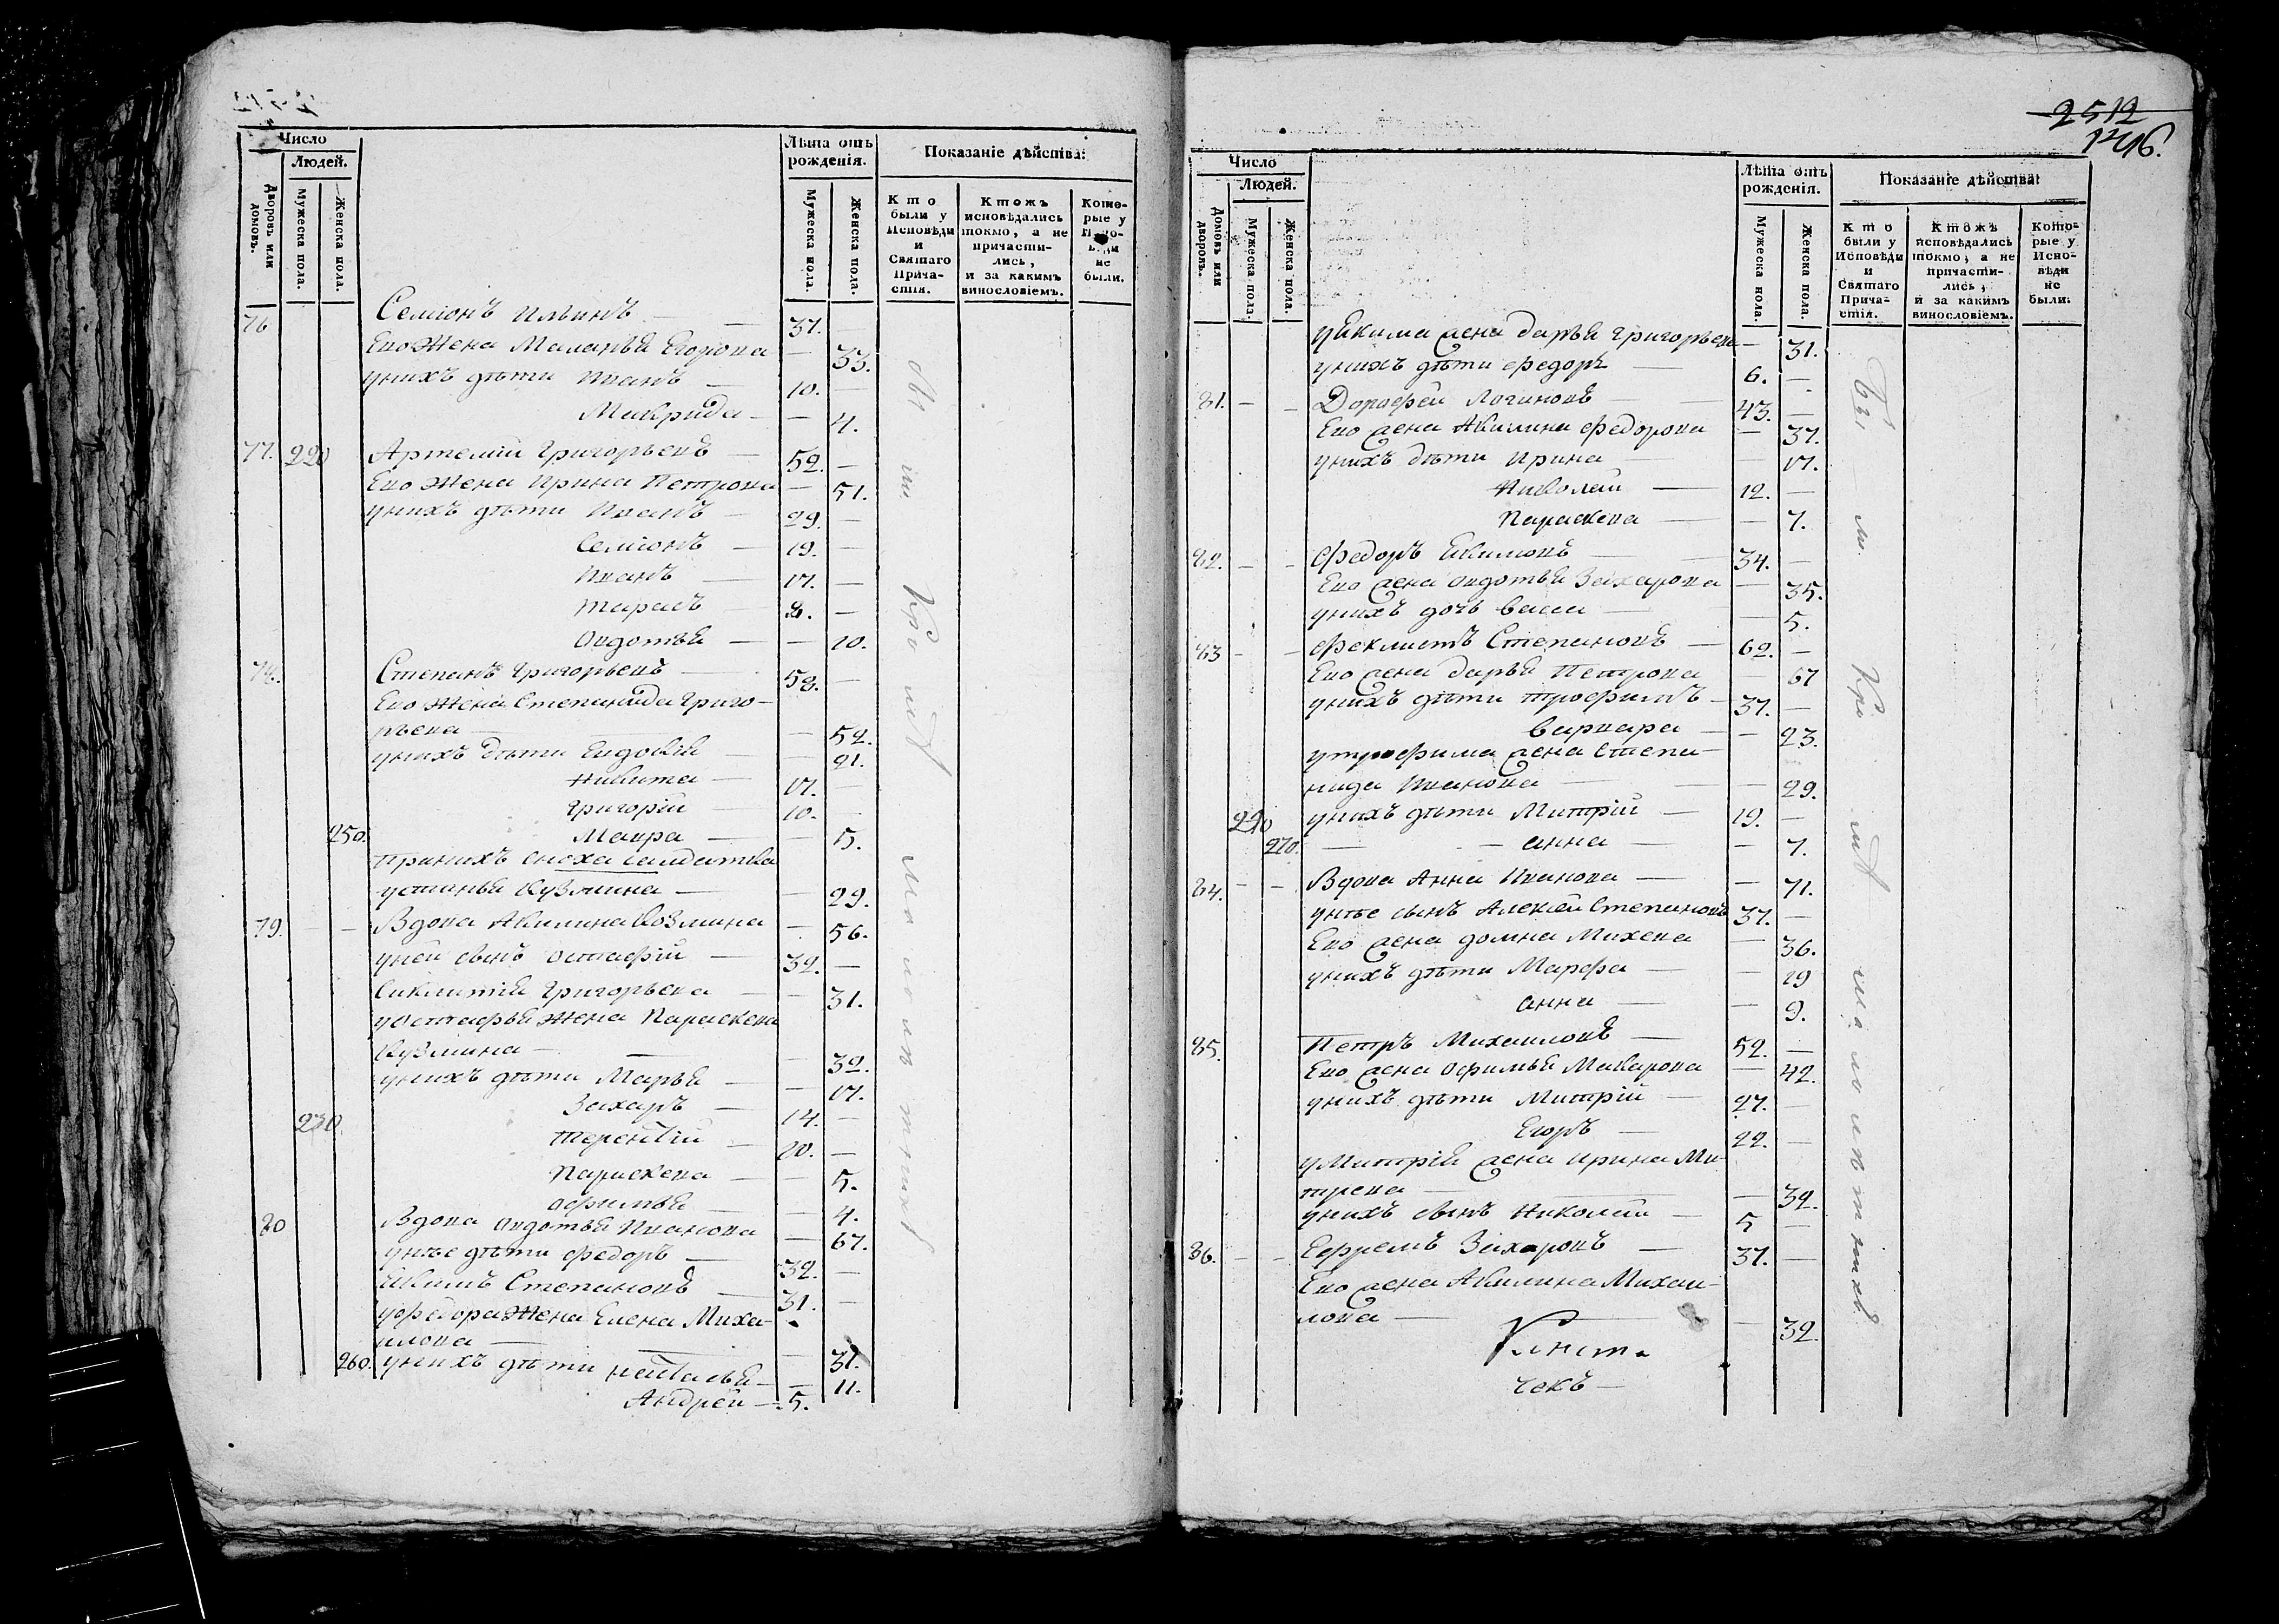 Число
Людей.
Дворовъ или домовъ.
Мужеска пола.
Женска пола.
Лѣта отъ рожденія.
Мужеска пола.
Женска пола.
Показаніе дѣйства:
Кто были у Исповѣди и Святаго Прича-стія.
Ктожъ исповѣдались токмо, а не причасти-лись, и за какимъ винословіемъ.
Кото-рые у Испо-вѣди не были.
76 Семіонъ Ильинъ — 37. —
Ево жена Маланья Егорова — 33.
унихъ дѣти Иванъ — 10. —
Макрида — — 4.
77. 220 Артемій Григорьевъ — 52. —
Ево жена Ирина Петрова — 51.
унихъ дѣти Иванъ — 29. —
Семіонъ — 19. —
Иванъ — 17. —
Тарасъ — 8. —
Овдотья — — 10.
78. Степанъ Григорьевъ — 58. —
Ево жена Степанида Григо-
рьева — — 52.
унихъ дѣти Евдокія — — 21.
Никита — 17. —
Григорій — 10. —
250. Мавра — — 5.
Принихъ сноха салдатка
устинья Кузмина — — 29.
79. — — Вдова Акилина Козмина — 56.
уней сынъ Остафій — 32. —
Григорьева — — 31.
уОстафья жена Параскева
Кузмина — — 32.
унихъ дѣти Марья — — 17.
Захаръ — 14. —
230 Терентій — 20. —
Параскева — — 5.
Офимья — — 4.
80 Вдова Овдотья Иванова — 67.
унѣе дѣти Федоръ — 32. —
Степановъ — 31. —
уФедора жена Елена Миха-
илова — — 31.
260. унихъ дѣти Наталья — — 11.
Андрей — 5.
2512
1416.
Число
Людей.
Домовъ или дворовъ.
Мужеска пола.
Женска пола.
Лѣта отъ рожденія.
Мужеска пола.
Женска пола.
Показаніе дѣйства:
Кто были у Исповѣди и Святаго Прича-стія.
Ктожъ исповѣдались токмо, а не причасти-лись, и за какимъ винословіемъ.
Кото-рые у Испо-вѣди не были.
уЯкима жена дарья Григорьева — 31.
унихъ дѣти Федоръ — 6. —
81. — — Дорофей Логиновъ — 43. —
Ево жена Акилина Федорова — 37.
унихъ дѣти Ирина — — 17.
Николай — 12. —
Параскева — — 7.
82. — — Федоръ Екимовъ — 34. —
Ево жена Овдотья Захарова — 35.
унихъ дочь васса — — 5.
83 — — Феклистъ Степановъ — 62. —
Ево жена дарья Петрова — 67
унихъ дѣти Трофимъ — 37. —
варвара — — 23.
утрофима жена Степа-
нида Иванова — — 29.
290 унихъ дѣти Митрій — 19. —
270. — — анна — — 7.
84. — — Вдова Анна Иванова — — 71.
унѣе сынъ Алексей Степановъ 37. —
Ево жена домна Михева — 36.
унихъ дѣти Марфа — — 19
анна — — 9.
85. Петръ Михаиловъ — 52. —
Ево жена Офимья Макарова — 42.
унихъ дѣти Митрій — 27. —
Егоръ — 22. —
уМитрія жена Ирина Ми-
трева — — 32.
унихъ сынъ Николай — 5 —
86. — — Ефремъ Захаровъ — 37. —
Ево жена Акилина Михаи-
лова — — 32.